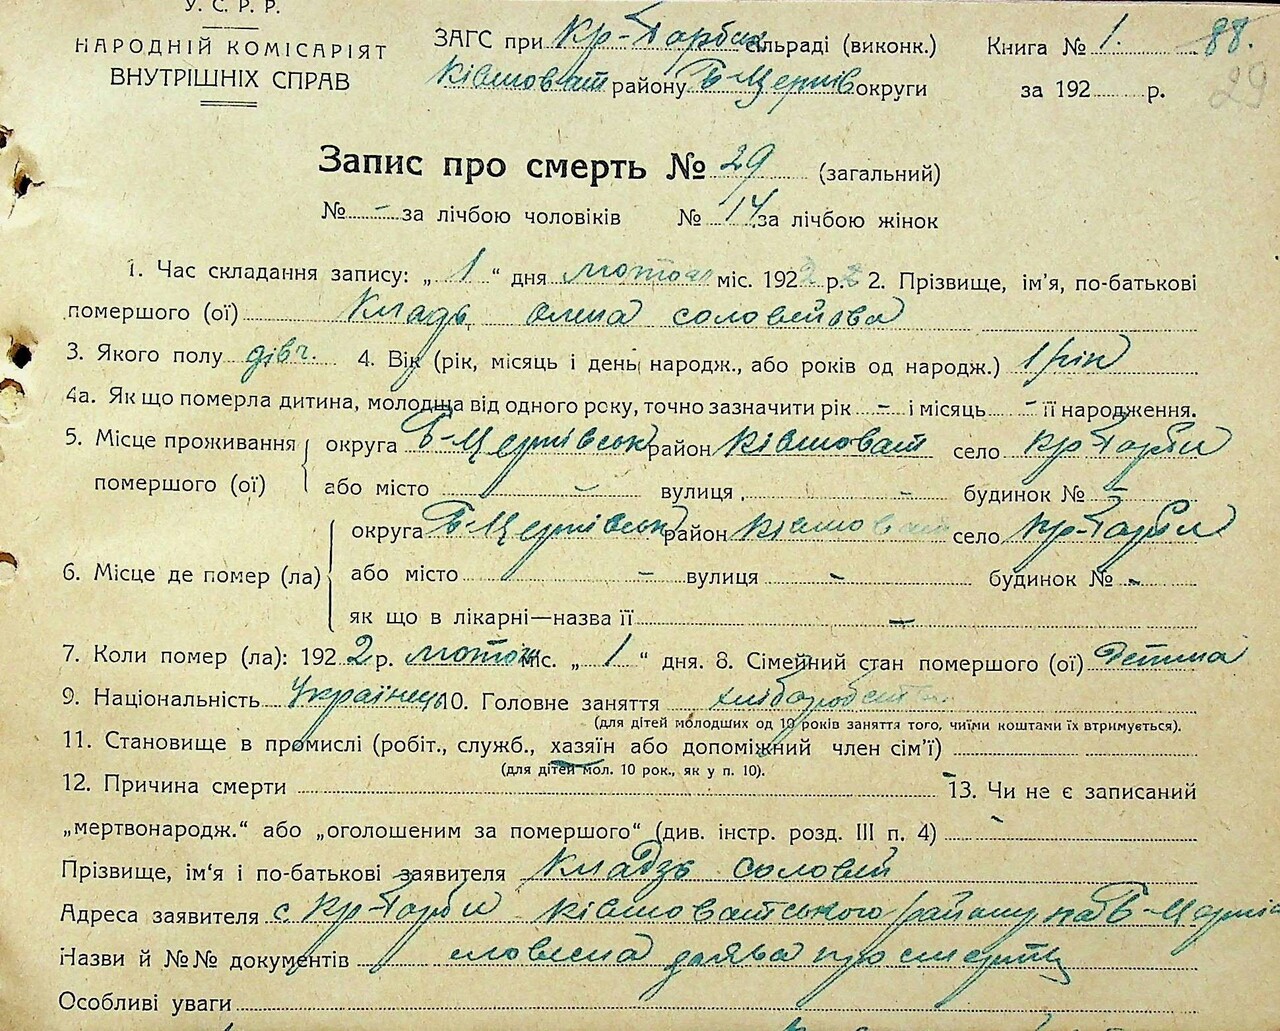 У. С. Р. Р.
НАРОДНІЙ КОМІСАРІЯТ
ВНУТРІШНІХ СПРАВ
ЗАГС при Кр-Горби сільраді (виконк.) Книга № 1. 88.
Ківшоват району Б-Церків округи за 192 р. 29
Запис про смерть № 29 (загальний)
№ - за лічбою чоловіків № 14 за лічбою жінок
1. Час складання запису: „ 1 “ дня лютого міс. 1922 р. 2. Прізвище, ім'я, по-батькові
помершого (ої) Кладь Олена Соловейова
3. Якого полу дівч. 4. Вік (рік, місяць і день народж., або років од народж.) 1 рік
4а. Як що померла дитина, молодша від одного року, точно зазначити рік - і місяць - її народження.
5. Місце проживання округа Б-Церківськ район Ківшоват село Кр-Горби
помершого (ої) або місто - вулиця - будинок № -
округа Б-Церківськ район Ківшоват село Кр-Горби
6. Місце де помер (ла) або місто - вулиця - будинок № -
як що в лікарні—назва її -
7. Коли помер (ла): 1922 р. лютого міс. „ 1 “ дня. 8. Сімейний стан помершого (ої) Детина
9. Національність Українець 10. Головне заняття хліборобство
(для дітей молодших од 10 років заняття того, чиїми коштами їх втримується).
11. Становище в промислі (робіт., служб., хазяїн або допоміжний член сім'ї)
(для дітей мол. 10 рок., як у п. 10).
12. Причина смерти - 13. Чи не є записаний
„мертвонародж.“ або „оголошеним за помершого“ (див. інстр. розд. III п. 4) -
Прізвище, ім'я і по-батькові заявителя Кладзь Соловей
Адреса заявителя с. Кр-Горби Ківшоватського району на Б-Церків
Назви й №№ документів словесна заява про смерть
Особливі уваги